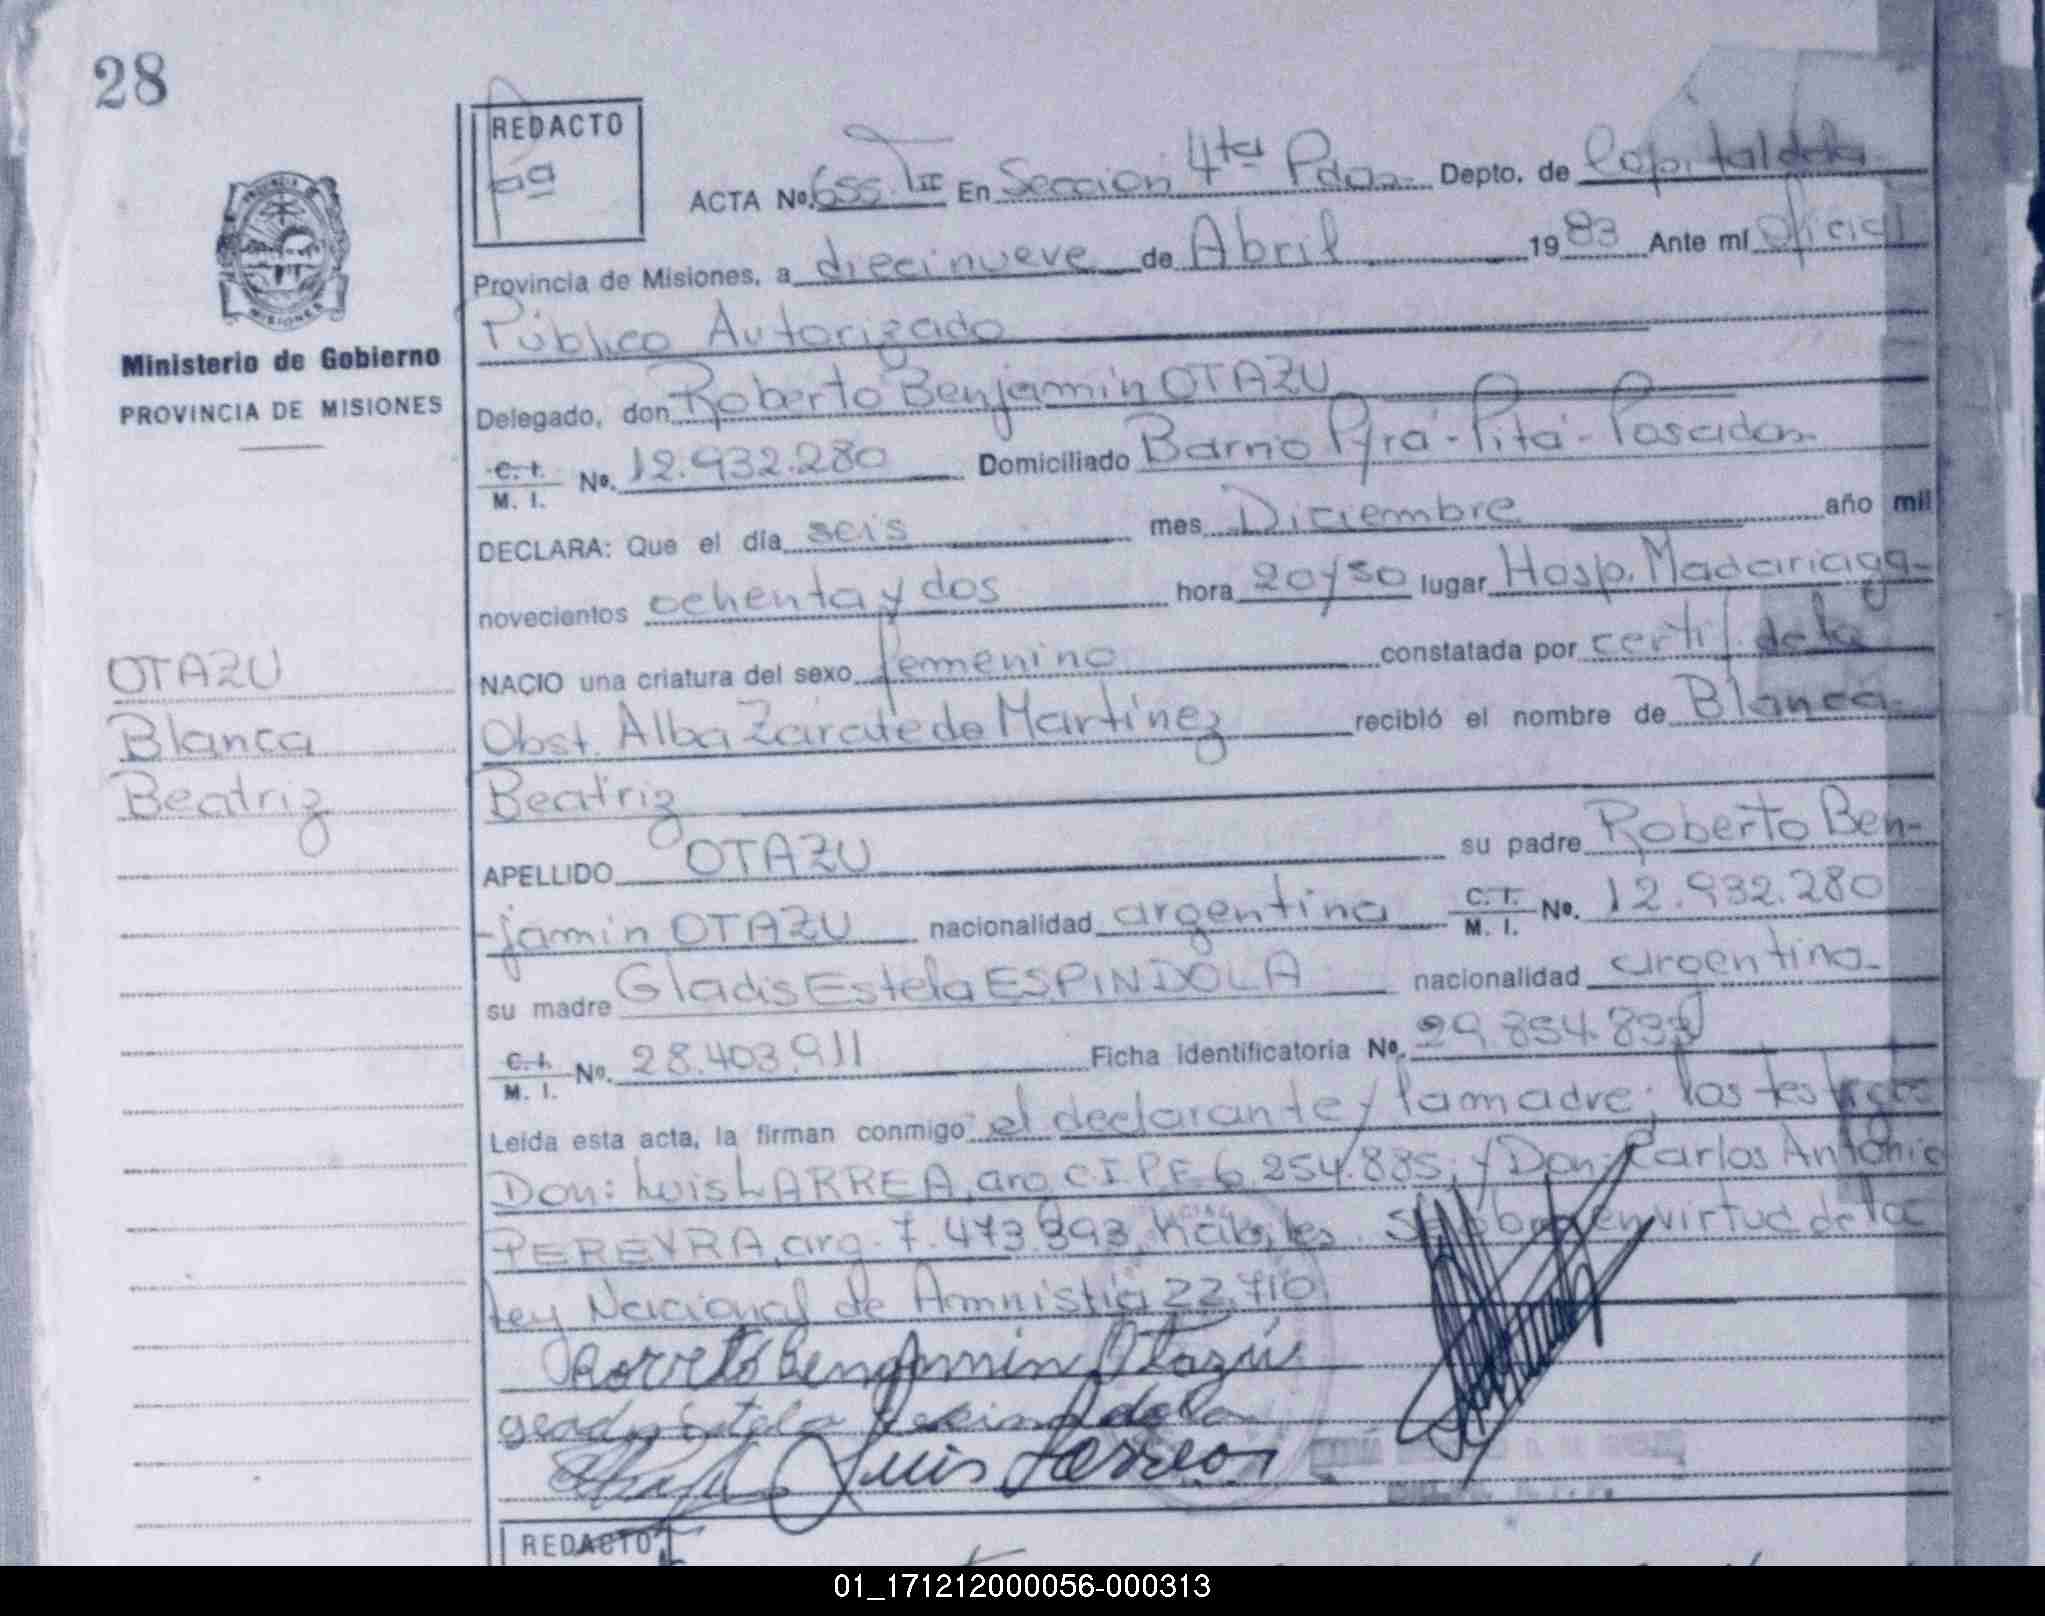 28
REDACTO
ACTA No. 655 TºII En Sección 4ta Pdas. Depto. de Capital de la
Provincia de Misiones, a diecinueve de Abril 1983 Ante mí Oficial
Público Autorizado
Ministerio de Gobierno
PROVINCIA DE MISIONES
Delegado, don Roberto Benjamín OTAZU
C. I. M. I. No. 12.932.280 Domiciliado Barrio Pyrá-Pitá-Posadas
DECLARA: Que el día seis mes Diciembre año mil
novecientos ochenta y dos hora 20/30 lugar Hosp. Madariaga-
NACIO una criatura del sexo femenino constatada por certif. de la
Obst. Alba Zarate de Martínez recibió el nombre de Blanca
Beatriz
OTAZU
Blanca
Beatriz
APELLIDO OTAZU su padre Roberto Ben-
-jamin OTAZU nacionalidad argentina C. I. M. I. No. 12.932.280
su madre Gladis Estela ESPINDOLA nacionalidad argentina
C. I. M. I. No. 28.403.911 Ficha identificatoria No. 29.854.83
Leída esta acta, la firman conmigo el declarante y la madre; los testigos
Don: Luis LARREA, arg C.I.P.F. 6.254.885; y Don: Carlos Antonio
PEREYRA, arg. 7.473.893, hábiles. Se labra en virtud de la
Ley Nacional de Amnistía 22.710
Roberto Benjamin Otazú
Luis Larrea
REDACTO
MISIONES
01_171212000056-000313